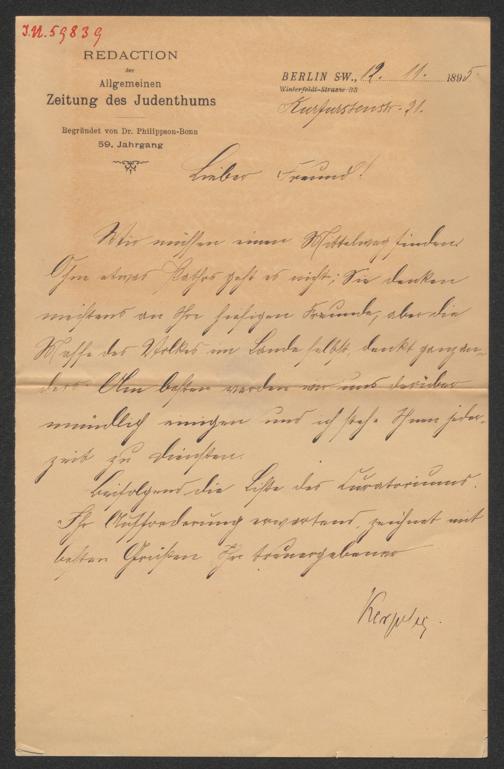 I.N. 59839
REDACTION
der
Allgemeinen
Zeitung des Judenthums
Begründet von Dr. Philippson-Bonn
59. Jahrgang
BERLIN SW., 12. 11. 1895
Winterfeldt-Strasse
Kurfürstenstr. 21.
Lieber Freund!
Wir müssen einen Mittelweg finden.
Ohne etwas Pathos geht es nicht; Sie denken
meistens an Ihre hiesigen Freunde, aber die
Masse des Volkes im Lande selbst denkt ganz an-
ders. Am besten werden wir uns darüber
mündlich einigen und ich stehe Ihnen jeder-
zeit zu Diensten.
Beifolgend die Liste des Curatoriums.
Ihr Aufforderung erwartend, zeichnet mit
besten Grüßen Ihr treuergebener
Karpeles.